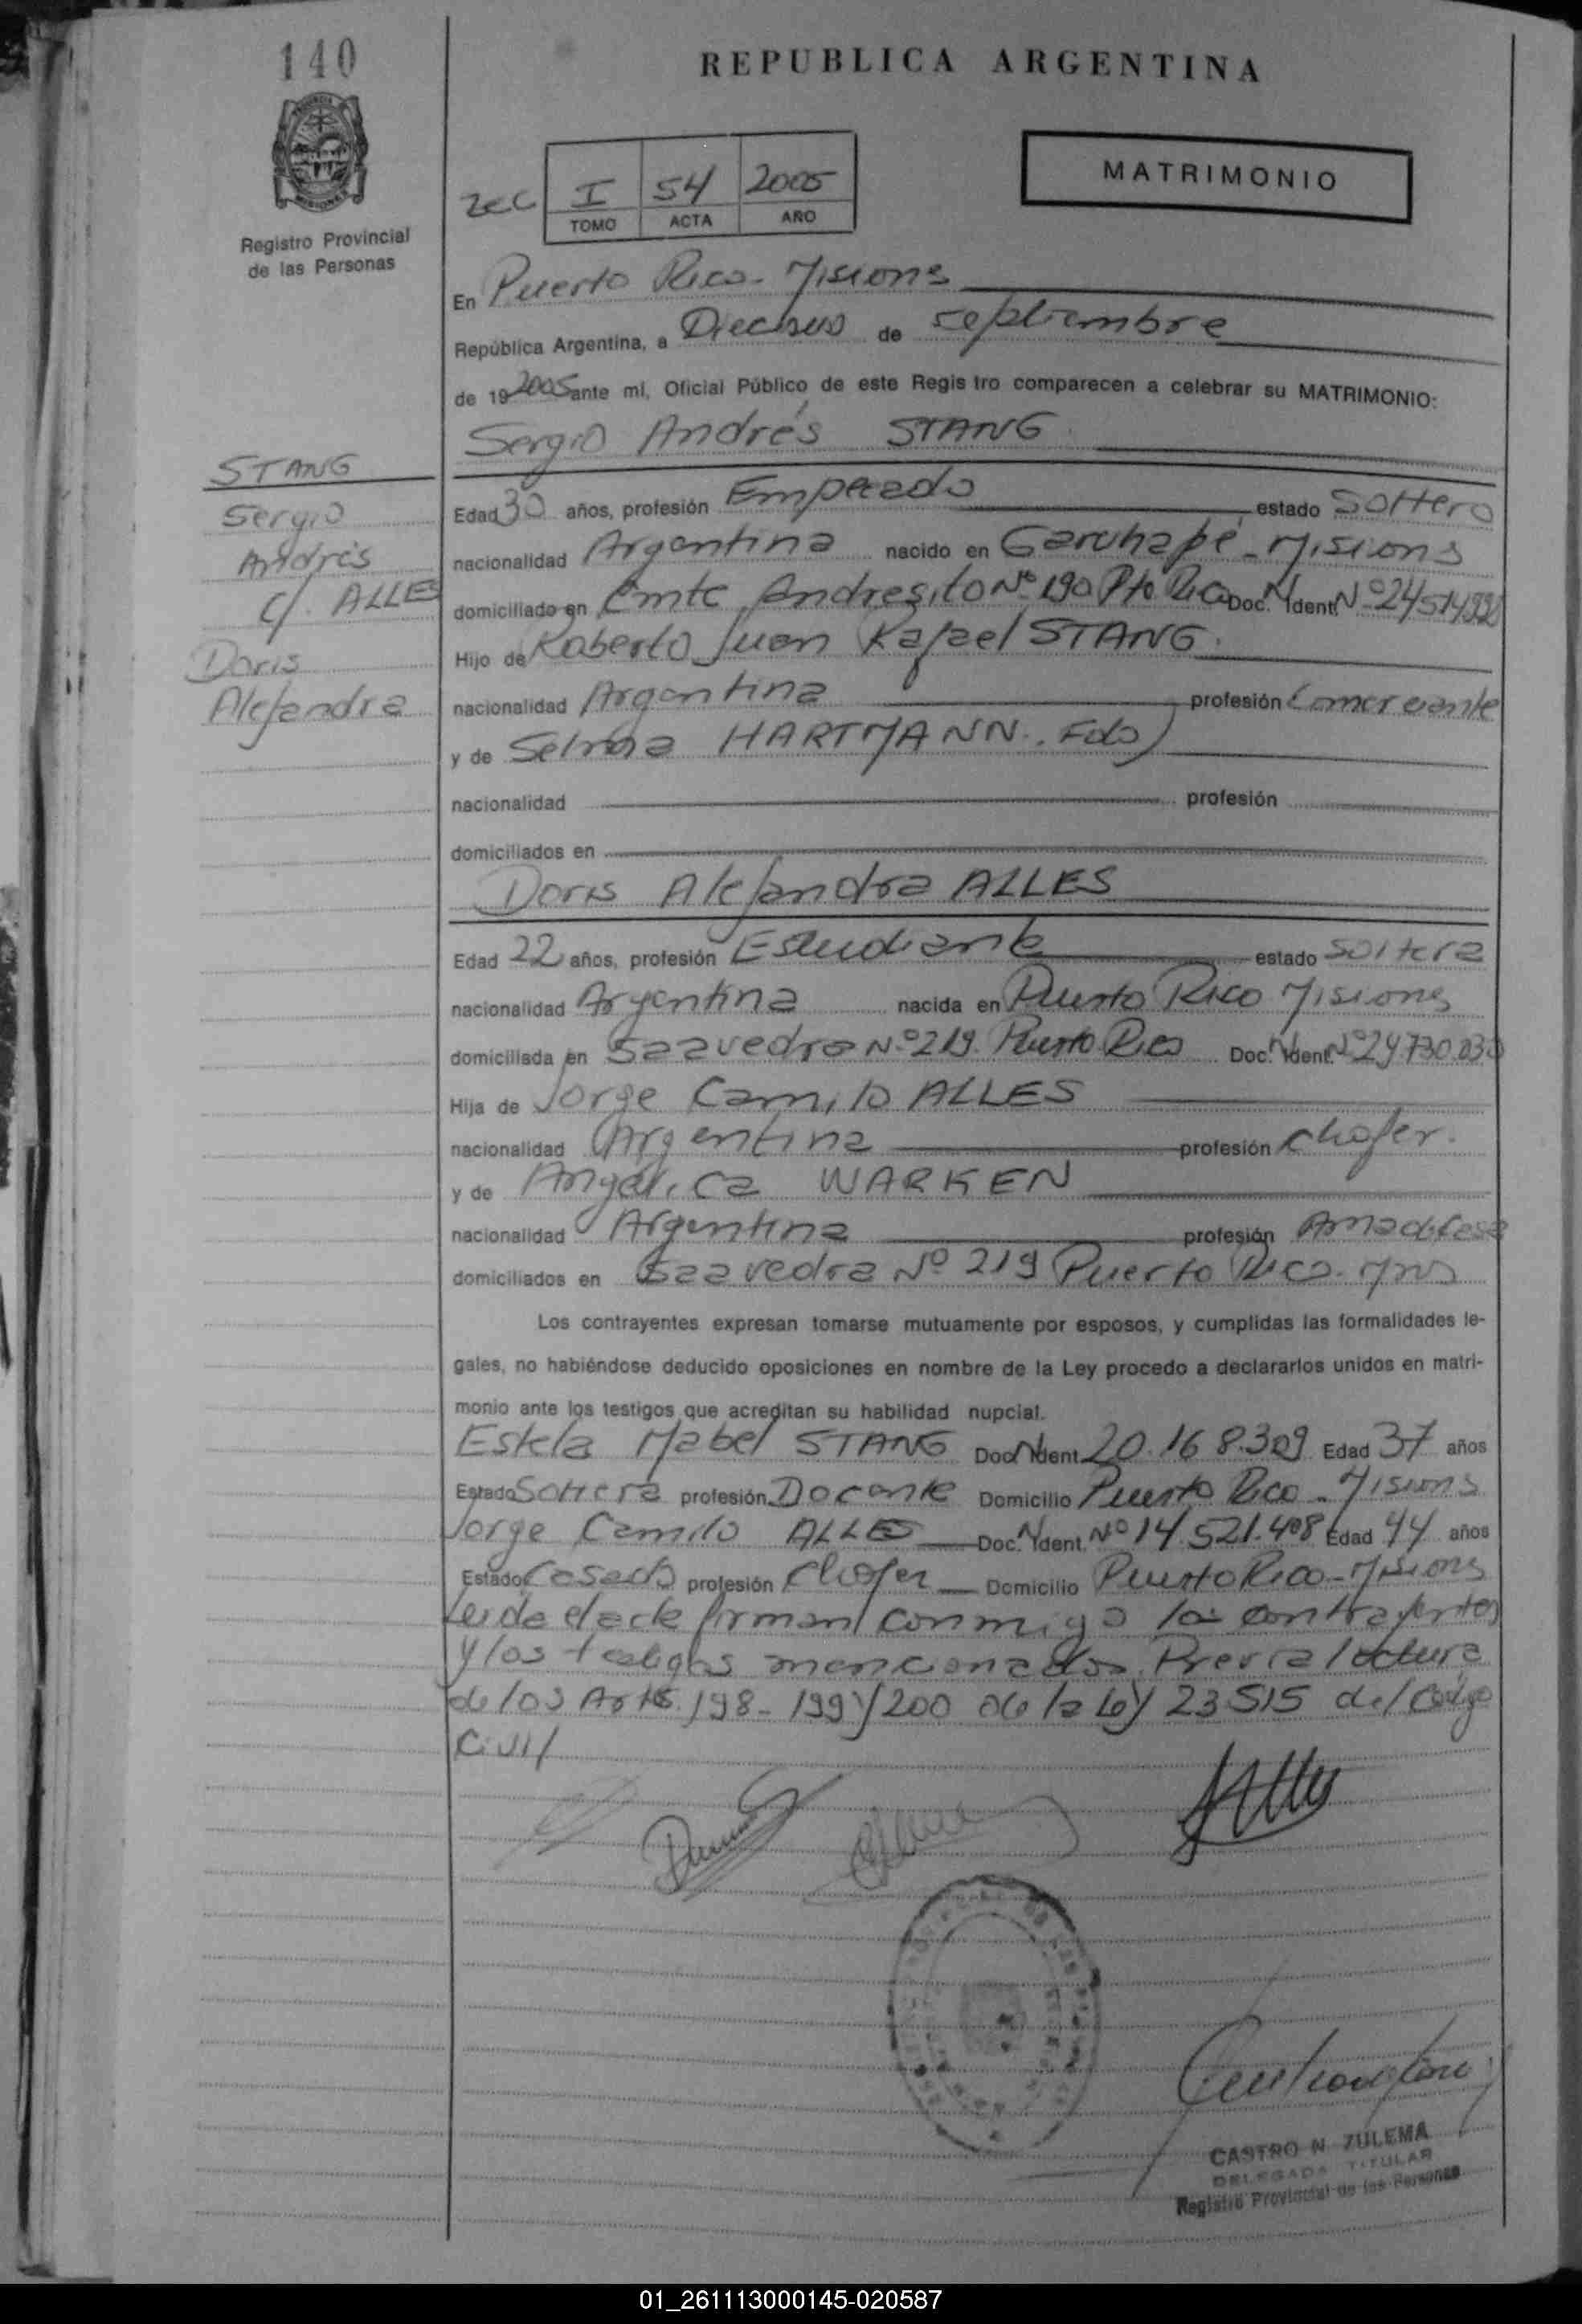 140
REPUBLICA ARGENTINA
MATRIMONIO
Registro Provincial
de las Personas
I 54 2005
TOMO ACTA AÑO
En Puerto Rico - Misiones
República Argentina, a Dieciseis de septiembre
de 19 2005 ante mi, Oficial Público de este Registro comparecen a celebrar su MATRIMONIO:
Sergio Andrés STANG
STANG
Sergio
Andrés
c/. ALLES
Doris
Alejandra
Edad 30 años, profesión Empleado estado Soltero
nacionalidad Argentina nacido en Garuhapé - Misiones
domiciliado en Cmte Andresito Nº 190 Pto. Rico Doc. N. Ident. Nº 24514990
Hijo de Roberto Juan Rafael STANG
nacionalidad Argentina profesión Comerciante
y de Selma HARTMANN. Fdo)
nacionalidad profesión
domiciliados en
Doris Alejandra ALLES
Edad 22 años, profesión Estudiante estado soltera
nacionalidad Argentina nacida en Puerto Rico Misiones
domiciliada en Saavedra Nº 219. Puerto Rico Doc. N. Ident. Nº 29.730.030
Hija de Jorge Camilo ALLES
nacionalidad Argentina profesión chofer.
y de Angélica WARKEN
nacionalidad Argentina profesión Ama de Casa
domiciliados en Saavedra Nº 219 Puerto Rico - Mnes
Los contrayentes expresan tomarse mutuamente por esposos, y cumplidas las formalidades le-
gales, no habiéndose deducido oposiciones en nombre de la Ley procedo a declararlos unidos en matri-
monio ante los testigos que acreditan su habilidad nupcial.
Estela Mabel STANG Doc. N. Ident. 20.168.309 Edad 37 años
Estado Soltera profesión Docente Domicilio Puerto Rico - Misiones
Jorge Camilo ALLES Doc. N. Ident. Nº 14.521.408 Edad 44 años
Estado Casado profesión Chofer Domicilio Puerto Rico - Misiones
Leida el acta firman conmigo los contrayentes
y los testigos mencionados. Previa lectura
de los Arts. 198 - 199 y 200 de la Ley 23515 del Codigo
Civil
Alles
CASTRO N. ZULEMA
DELEGADA TITULAR
Registro Provincial de las Personas
01_261113000145-020587